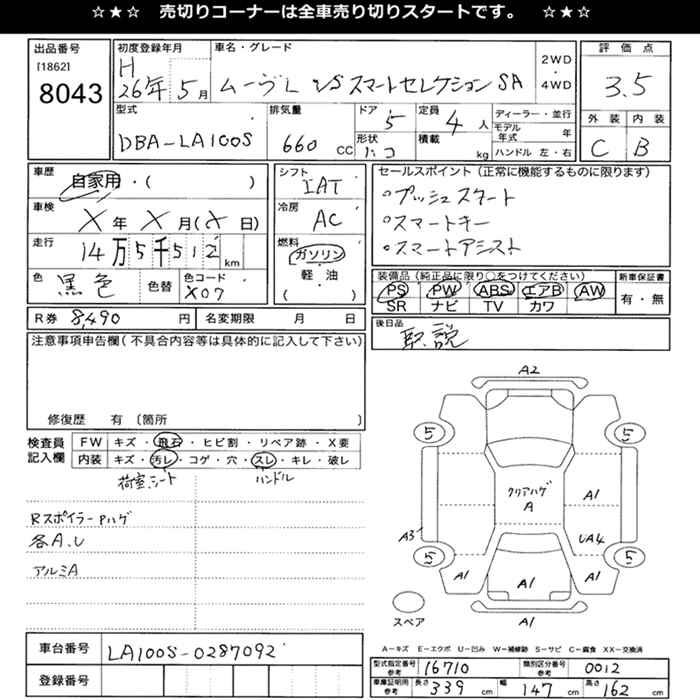 ☆★☆ 売切りコーナーは全車売り切りスタートです。 ☆★☆
出品番号
[1862]
8043
初度登録年月
H
26年5月
車名・グレード
ムーヴL VS スマートセレクションSA
2WD
・
4WD
評価点
3.5
外装 内装
C B
型式
DBA-LA100S
排気量
660 CC
ドア
5
形状
定員
4人
積載
kg
ディーラー・並行
モデル年式 年
ハンドル 左・右
車歴
自家用・( )
車検
X年X月(X日)
走行
14万5千512km
色
黒色
色替
色コード
X07
シフト
IAT
冷房
AC
燃料
ガソリン
軽・油
( )
セールスポイント(正常に機能するものに限ります)
○プッシュスタート
○スマートキー
○スマートアシスト
装備品(純正品に限り○をつけてください)
PS PW ABS エアB AW
SR ナビ TV カワ
新車保証書
有・無
R券 8,490円
名変期限 月 日
後日品
取説
注意事項申告欄(不具合内容等は具体的に記入して下さい)
修復歴 有 〔箇所 〕
検査員記入欄
FW キズ・飛石・ヒビ割・リペア跡・X要
内装 キズ・汚レ・コゲ・穴・スレ・キレ・破レ
荷室.シート ハンドル
RスポイラーPハゲ
各A.U
アルミA
A2
5 5
クリアハゲ
A
A1
A3
UA4
5 5
A1 A1 A1
スペア
A1
A-キズ E-エクボ U-凹み W-補修跡 S-サビ C-腐食 XX-交換済
車台番号
LA100S-0287092
登録番号
型式指定番号
参考
16710
類別区分番号
参考
0012
車庫証明用
参考
長さ 339cm 幅 147cm 高さ 162cm